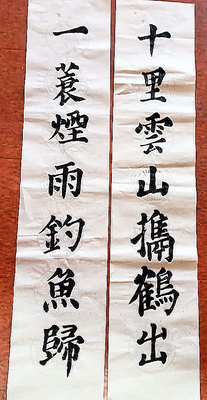 十里雲山攜鶴出
一蓑煙雨釣魚歸